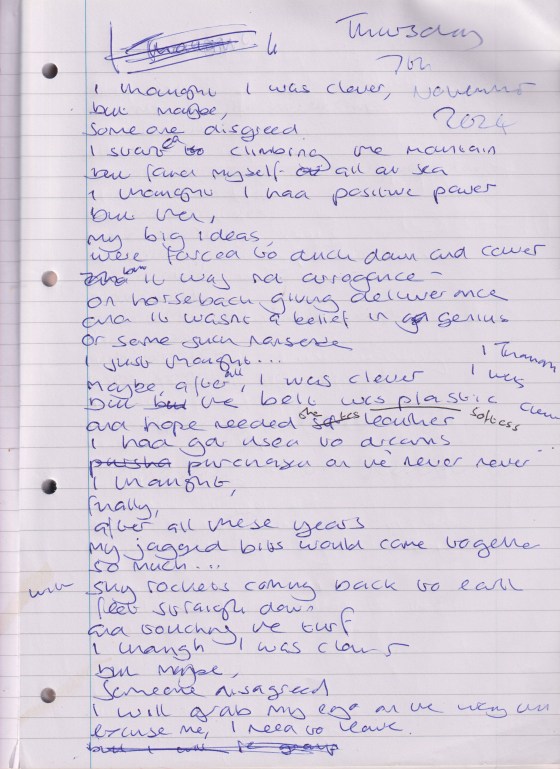 Thursday
7th
November
2024
I thought I was clever,
but maybe,
someone disgreed
I started climbing the mountain
but found myself all at sea
I thought I had positive power
but then,
my big ideas,
were forced to duck down and cower
it was not arrogance -
on horseback giving deliverance
and it wasnt a belief in genius
or some such nonsense
I just thought...
maybe, after all, I was clever
I thought
I was
clever
but the belt was plastic
and hope needed the softess leather
softess
I had got used to dreams
purchased on the never never
I thought,
finally,
after all these years
my jagged bits would come together
so much...
with
sky rockets coming back to earth
feet straight down
and touching the turf
I though I was clever
but maybe,
someone disagreed
I will grab my ego on the way out
excuse me, I need to leave.